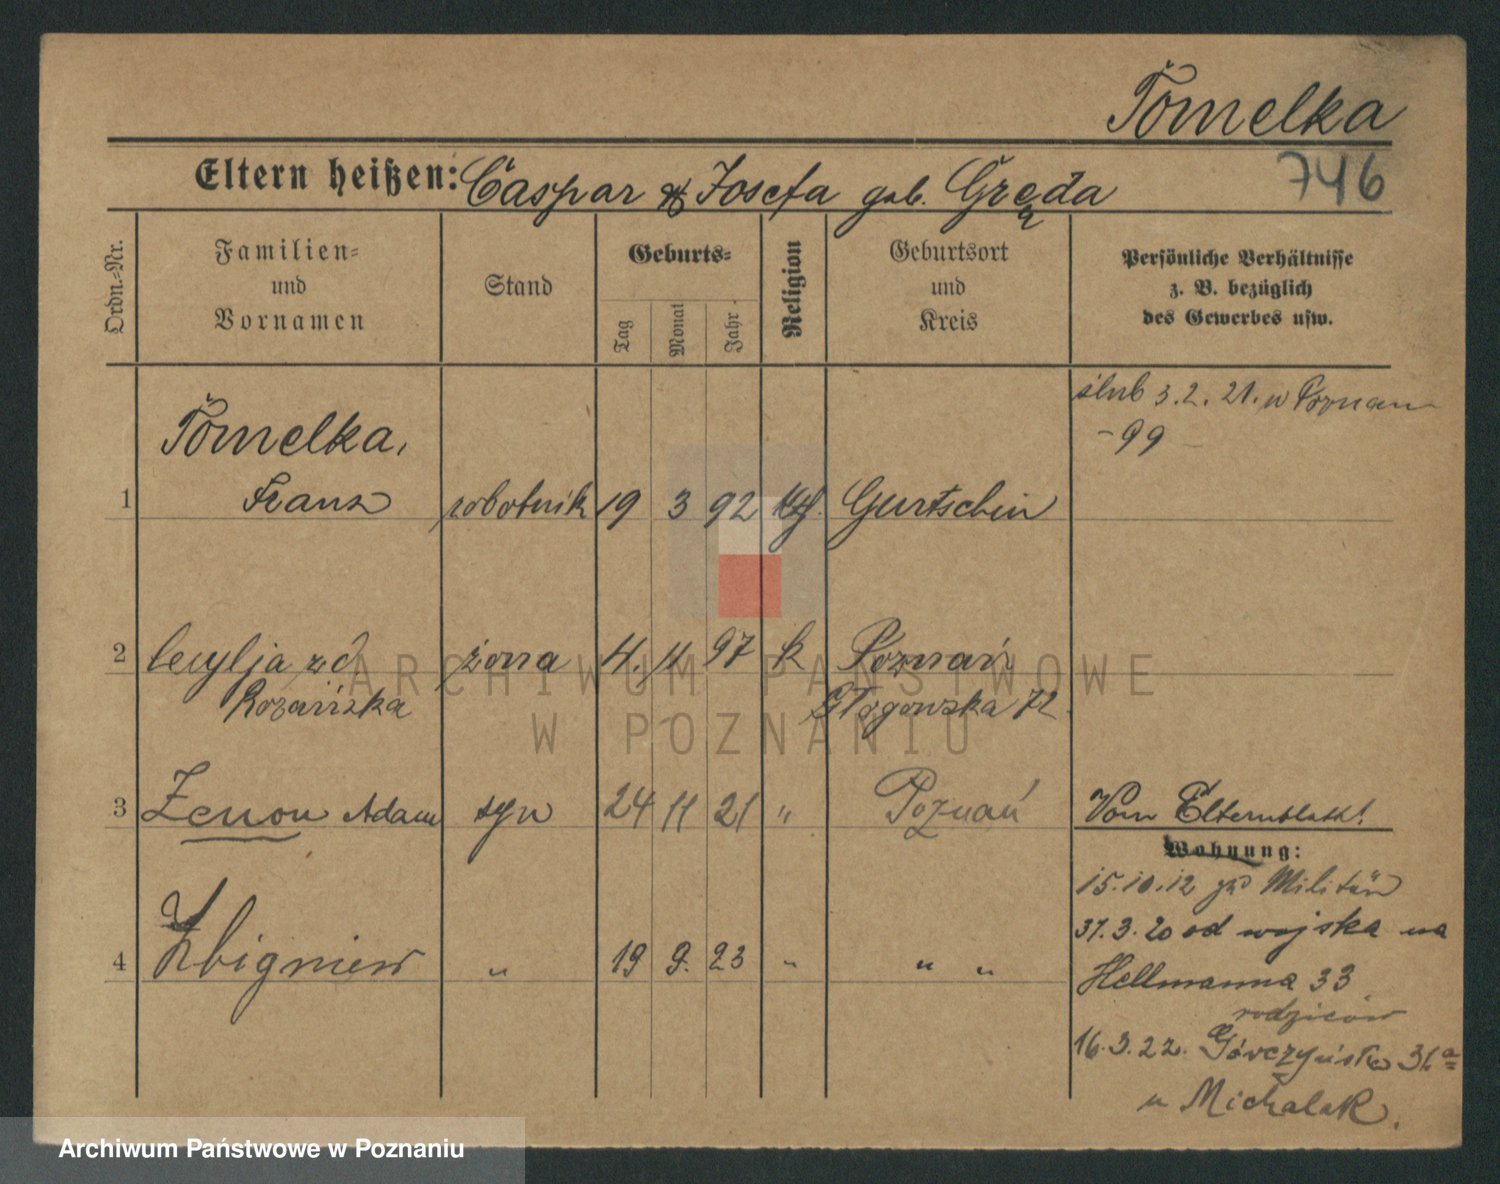 Tomelka
746
Eltern heißen: Caspar & Josefa geb. Gręda
Ordn.-Nr.
Familien-
und
Vornamen
Stand
Geburts-
Tag
Monat
Jahr
Religion
Geburtsort
und
Kreis
Persönliche Verhältnisse
z. B. bezüglich
des Gewerbes usw.
ślub 3.2.21. w Poznan
-99-
Tomelka,
1 Franz robotnik 19 3 92 Gurtschin
2 Cecylja zd żona 4. 11 97 k Poznań
Rozańska Głogowska 72
3 Zenon Adam syn 24 11 21 " Poznań
Vom Elternblatt!
Wohnung:
15.10.12 zu Militär
31.3.20 od wojska na
4 Zbigniew " 19 9. 23 " " "
Hellmanna 33
rodziców
16.3.22. Górczyńska 31a
u Michalak.
ARCHIWUM PAŃSTWOWE
W POZNANIU
Archiwum Państwowe w Poznaniu